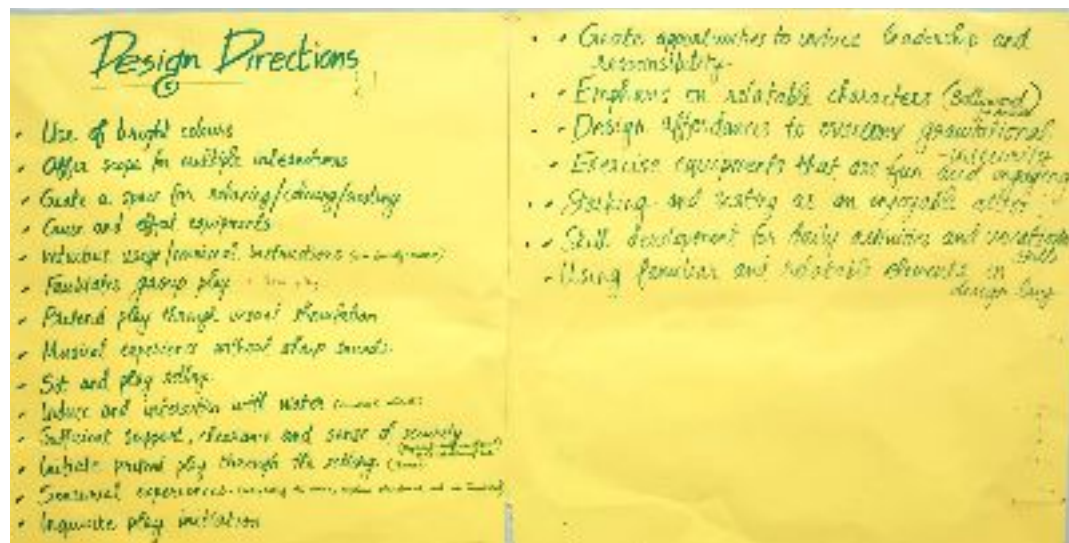 Design Directions
Use of bright colours
Offer scope for multiple interactions
Create a space for relaxing/calming/
Cause and effect equipments
usage/minimal instructions
Facilitates group play
Pretend play through visual stimulation
Musical experience without sharp sounds.
Sit and play setting.
Induce and interaction with water
Sufficient support, clearance and sense of security
Initiate pretend play through the setting.
experiences
play initiation
Create opportunities to induce leadership and
responsibility.
Emphasis on relatable characters (Bollywood)
Design affordances to overcome gravitational
insecurity
Exercise equipments that are fun and engaging
Stacking and as an enjoyable
Skill development for daily activities and vocational
skills
Using familiar and relatable elements in
design lang